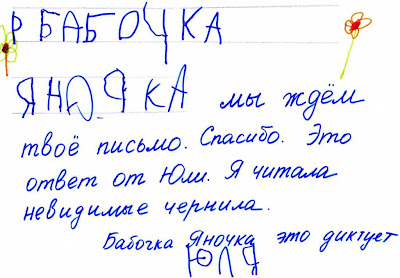 Р БАБОЧКА
ЯНОЯКА мы ждём
твоё письмо. Спасибо. Это
ответ от Юли. Я читала
невидимые чернила.
Бабочка Яночка это диктует
ЮЛЯ